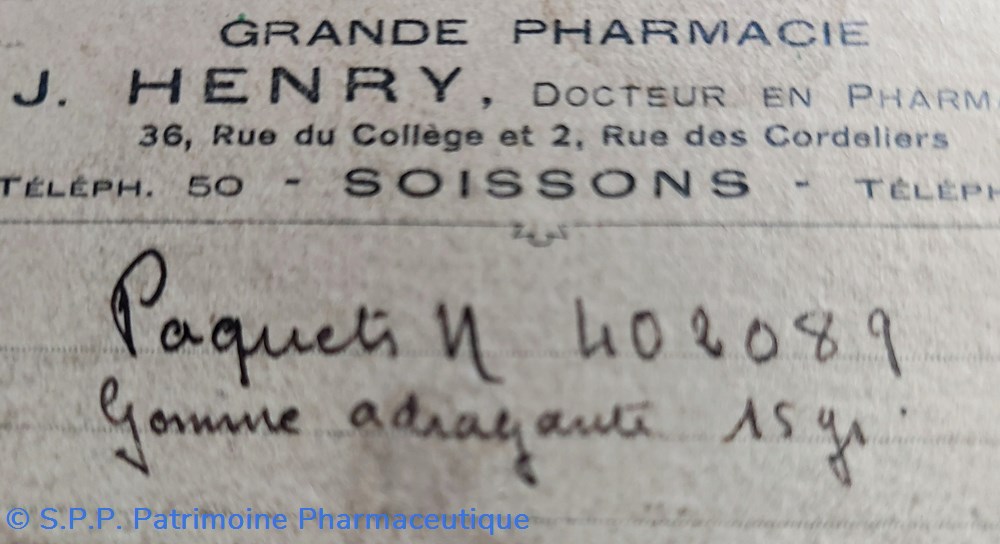 GRANDE PHARMACIE
J. HENRY, DOCTEUR EN PHARM
36, Rue du Collège et 2, Rue des Cordeliers
TÉLÉPH. 50 - SOISSONS - TÉLÉPH
Paquets N 402089
Gomme adragante 15 gr.
© S.P.P. Patrimoine Pharmaceutique